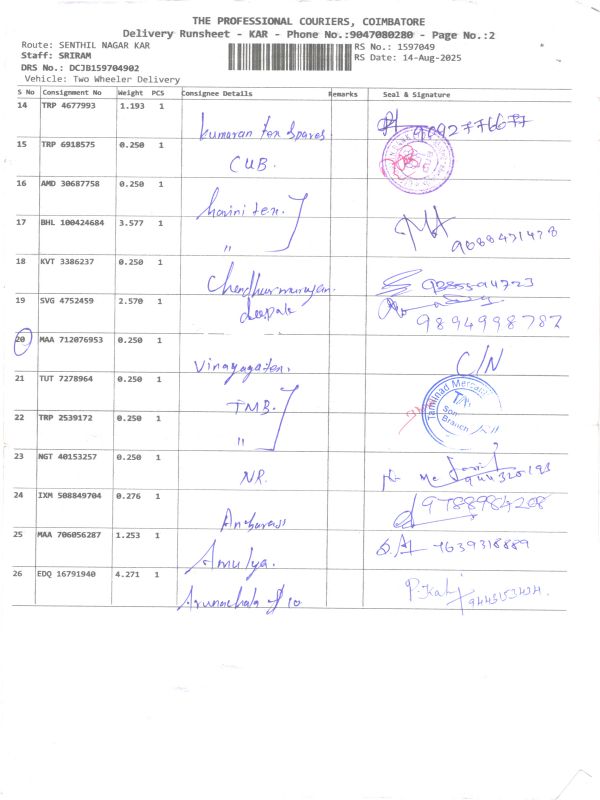 THE PROFESSIONAL COURIERS, COIMBATORE
Delivery Runsheet - KAR - Phone No.:9047080280 - Page No.:2
Route: SENTHIL NAGAR KAR
RS No.: 1597049
Staff: SRIRAM
RS Date: 14-Aug-2025
DRS No.: DCJB159704902
Vehicle: Two Wheeler Delivery
S No Consignment No Weight PCS Consignee Details Remarks Seal & Signature
14 TRP 4677993 1.193 1
Kumaran Tex Spares
15 TRP 6918575 0.250 1
CUB.
16 AMD 30687758 0.250 1
harini tex.
17 BHL 100424684 3.577 1
"
9088471478
18 KVT 3386237 0.250 1
19 SVG 4752459 2.570 1
deepak
9894998787
20 MAA 712076953 0.250 1
Vinayagatex. C/N
21 TUT 7278964 0.250 1
TMB. Tamilnad Mercan
Branch
22 TRP 2539172 0.250 1
"
23 NGT 40153257 0.250 1
NR.
24 IXM 508849704 0.276 1
Anbarasi 9788984208
25 MAA 706056287 1.253 1
Amulya. 9639318889
26 EDQ 16791940 4.271 1
Arunachala